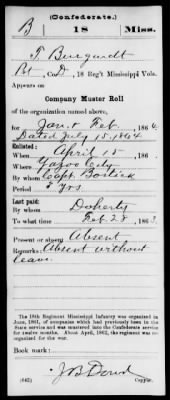 (Confederate.)
B 18 Miss.
T. Burgundt
Pvt, Co. D, 18 Reg't Mississippi Vols.
Appears on
Company Muster Roll
of the organization named above,
for Jan. & Feb., 1864.
Dated July 15, 1864
Enlisted:
When April 15, 186
Where Yazoo City
By whom Capt. Bostick
Period 3 yrs
Last paid:
By whom Doherty
To what time Feb. 28, 1863
Present or absent Absent
Remarks: Absent without
leave.
The 18th Regiment Mississippi Infantry was organized in
June, 1861, of companies which had previously been in the
State service and was mustered into the Confederate service
for twelve months. About April, 1862, the regiment was re-
organized for the war.
Book mark:
J B Dowd
(642) Copyist.